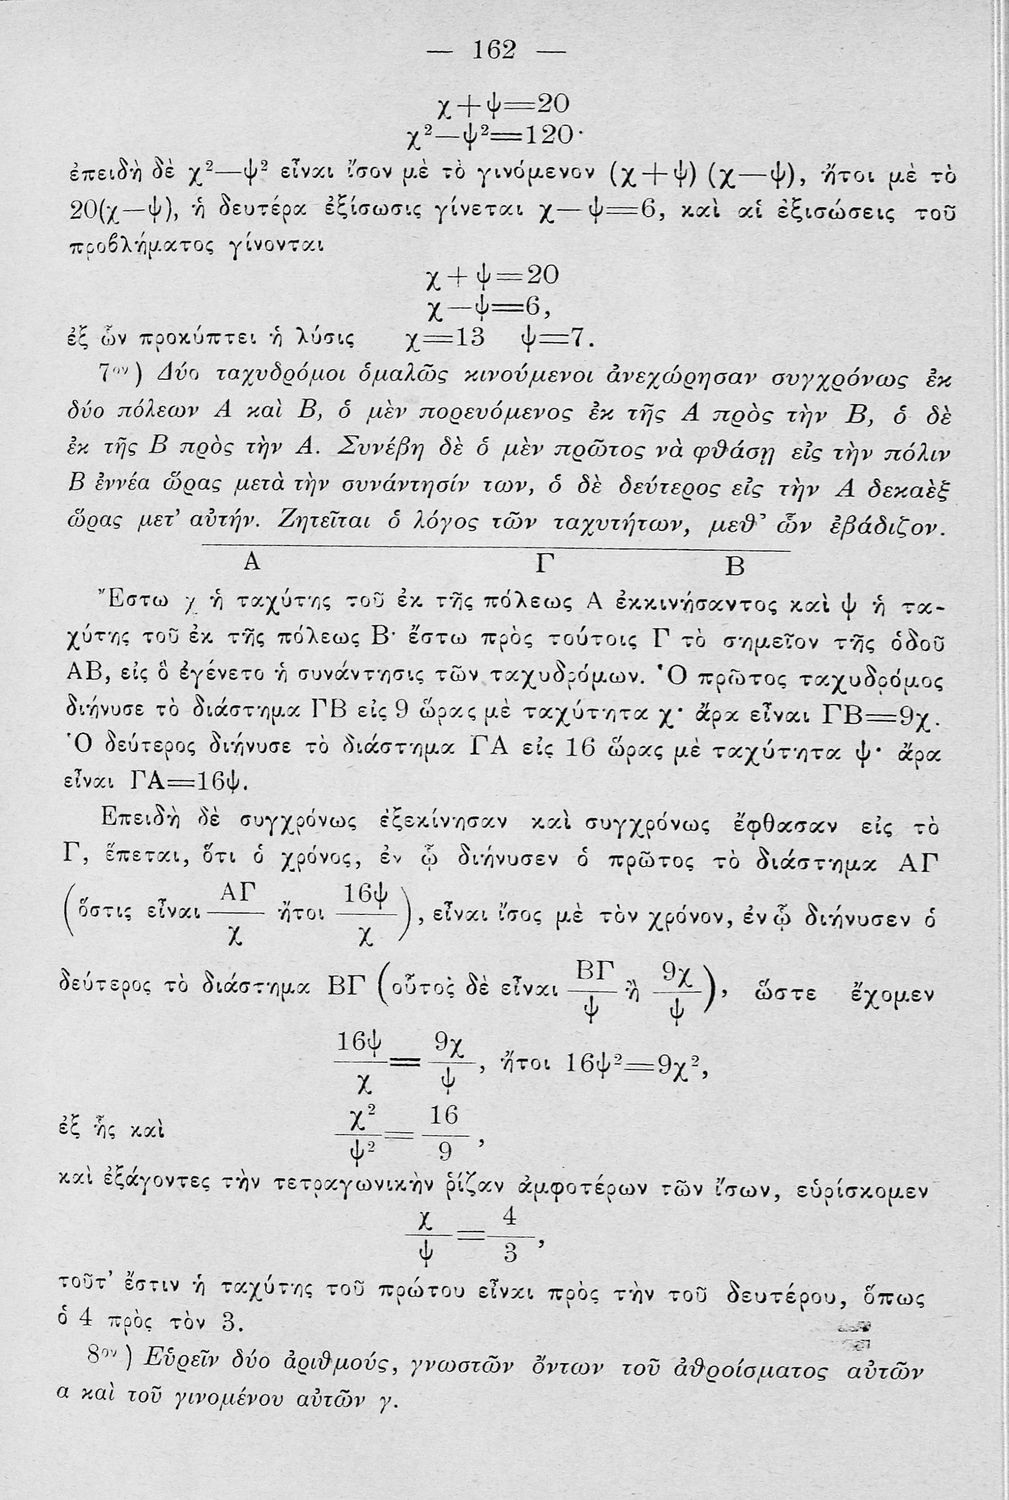 — 162 —
χ+ψ=20
χ²—ψ²=120·
ἐπειδὴ δὲ χ²—ψ² εἶναι ἴσον μὲ τὸ γινόμενον (χ+ψ) (χ—ψ), ἤτοι μὲ τὸ
20(χ—ψ), ἡ δευτέρα ἐξίσωσις γίνεται χ—ψ=6, καὶ αἱ ἐξισώσεις τοῦ
προβλήματος γίνονται
χ+ψ=20
χ—ψ=6,
ἐξ ὧν προκύπτει ἡ λύσις χ=13 ψ=7.
7ον) Δύο ταχυδρόμοι ὁμαλῶς κινούμενοι ἀνεχώρησαν συγχρόνως ἐκ
δύο πόλεων Α καὶ Β, ὁ μὲν πορευόμενος ἐκ τῆς Α πρὸς τὴν Β, ὁ δὲ
ἐκ τῆς Β πρὸς τὴν Α. Συνέβη δὲ ὁ μὲν πρῶτος νὰ φθάσῃ εἰς τὴν πόλιν
Β ἐννέα ὥρας μετὰ τὴν συνάντησίν των, ὁ δὲ δεύτερος εἰς τὴν Α δεκαὲξ
ὥρας μετ' αὐτήν. Ζητεῖται ὁ λόγος τῶν ταχυτήτων, μεθ' ὧν ἐβάδιζον.
Α Γ Β
Ἔστω χ ἡ ταχύτης τοῦ ἐκ τῆς πόλεως Α ἐκκινήσαντος καὶ ψ ἡ τα-
χύτης τοῦ ἐκ τῆς πόλεως Β· ἔστω πρὸς τούτοις Γ τὸ σημεῖον τῆς ὁδοῦ
ΑΒ, εἰς ὃ ἐγένετο ἡ συνάντησις τῶν ταχυδρόμων. Ὁ πρῶτος ταχυδρόμος
διήνυσε τὸ διάστημα ΓΒ εἰς 9 ὥρας μὲ ταχύτητα χ· ἄρα εἶναι ΓΒ=9χ.
Ὁ δεύτερος διήνυσε τὸ διάστημα ΓΑ εἰς 16 ὥρας μὲ ταχύτητα ψ· ἄρα
εἶναι ΓΑ=16ψ.
Επειδὴ δὲ συγχρόνως ἐξεκίνησαν καὶ συγχρόνως ἔφθασαν εἰς τὸ
Γ, ἕπεται, ὅτι ὁ χρόνος, ἐν ᾧ διήνυσεν ὁ πρῶτος τὸ διάστημα ΑΓ
(ὅστις εἶναι ΑΓ/χ ἤτοι 16ψ/χ), εἶναι ἴσος μὲ τὸν χρόνον, ἐν ᾧ διήνυσεν ὁ
δεύτερος τὸ διάστημα ΒΓ (οὗτος δὲ εἶναι ΒΓ/ψ ἢ 9χ/ψ), ὥστε ἔχομεν
16ψ/χ = 9χ/ψ, ἤτοι 16ψ²=9χ²,
ἐξ ἧς καὶ χ²/ψ² = 16/9,
καὶ ἐξάγοντες τὴν τετραγωνικὴν ῥίζαν ἀμφοτέρων τῶν ἴσων, εὑρίσκομεν
χ/ψ = 4/3,
τοῦτ' ἔστιν ἡ ταχύτης τοῦ πρώτου εἶναι πρὸς τὴν τοῦ δευτέρου, ὅπως
ὁ 4 πρὸς τὸν 3.
8ον) Εὑρεῖν δύο ἀριθμούς, γνωστῶν ὄντων τοῦ ἀθροίσματος αὐτῶν
α καὶ τοῦ γινομένου αὐτῶν γ.